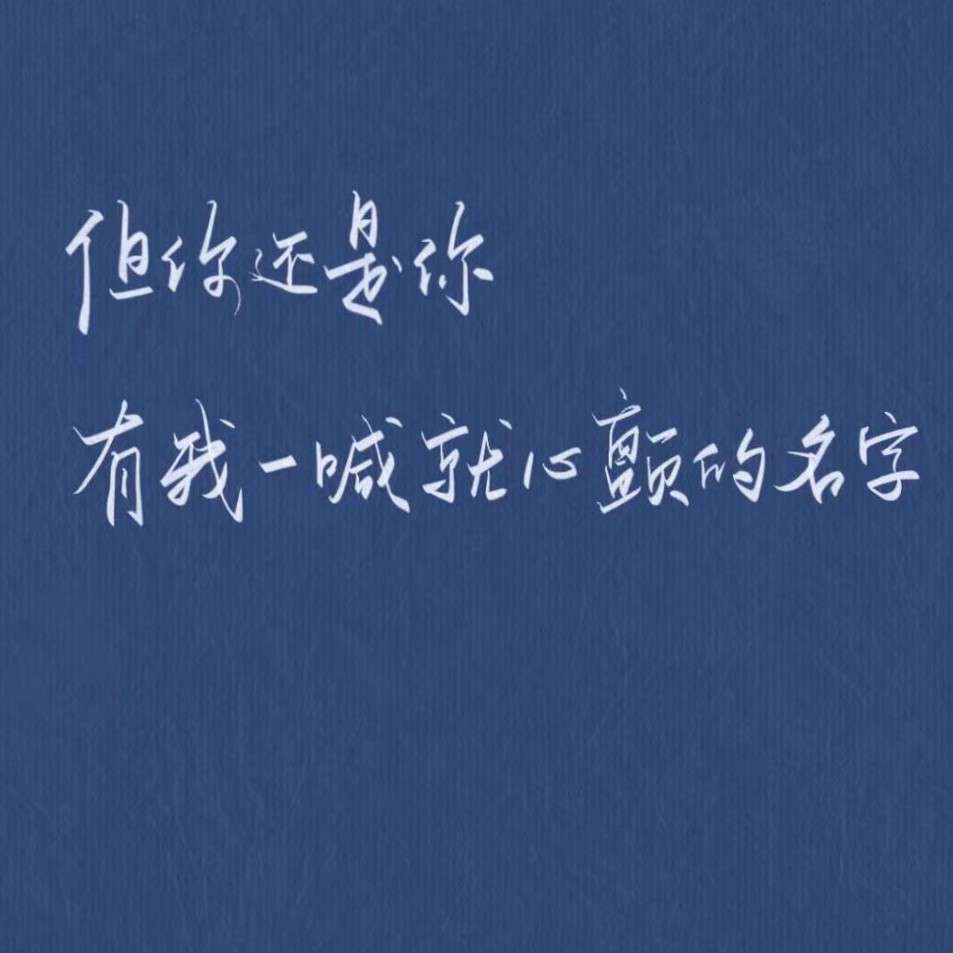 但你还是你
有我一喊就心颤的名字